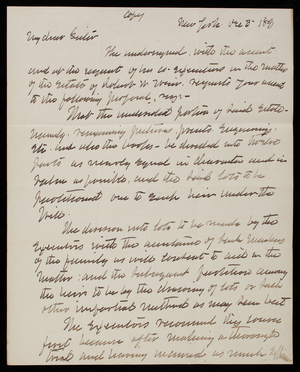 Copy
New York Dec 3rd 189
My dear Sister
The undersigned, with the assent
and at the request of his co-Executors in the matter
of the Estate of Robert W. Weir, requests your assent
to the following proposal, viz:-
That the undivided portion of said Estate-
namely: remaining pictures, frames, Engravings,
Etc. and also the books- be divided into twelve
parts as nearly equal in character and in
value as possible, and the said lots to be
apportioned one to each heir under the
Will.
The division into lots to be made by the
Executors with the assistance of such members
of the family as will consent to aid in the
matter: and the subsequent partition among
the heirs to be by the drawing of lots or such
other impartial method as may seem best
The Executors recommend this course
first because after making a thorough
trial and having incurred as much